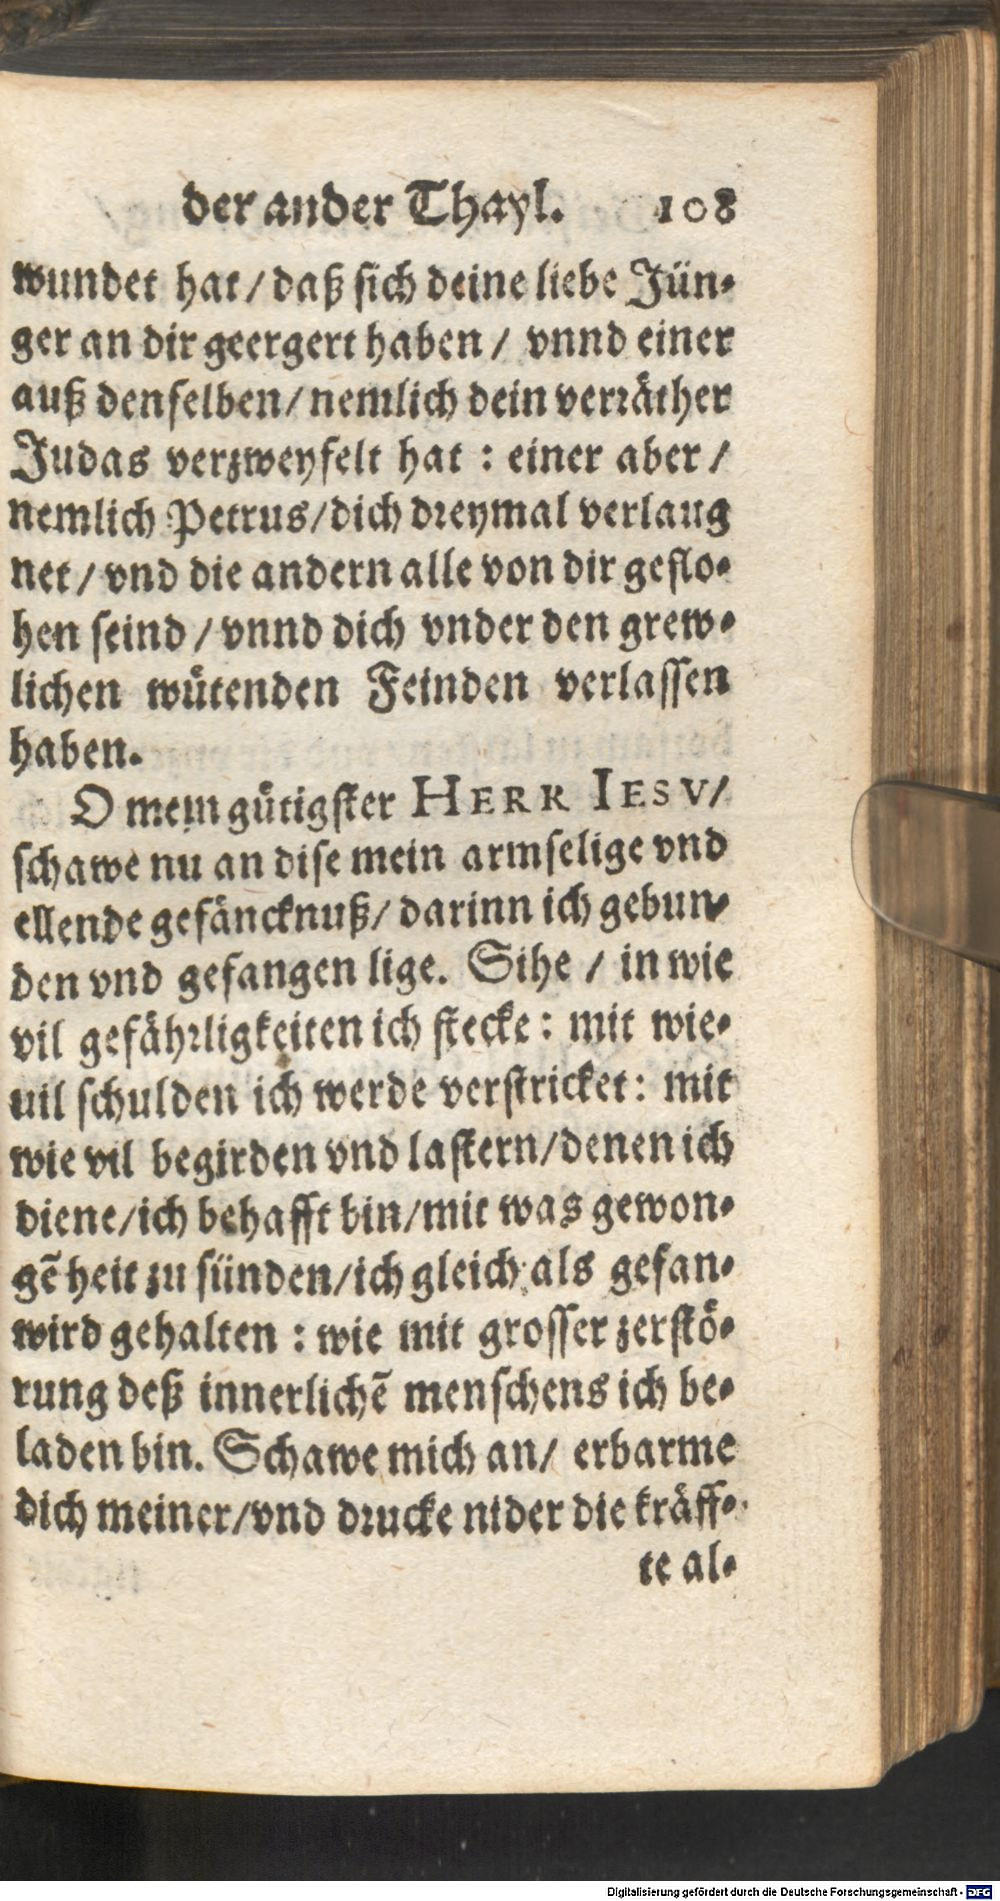 der ander Thayl. 108
wundet hat / daß sich deine liebe Jün-
ger an dir geergert haben / vnnd einer
auß denselben / nemlich dein verräther
Judas verzweyfelt hat : einer aber /
nemlich Petrus / dich dreymal verlaug
net / vnd die andern alle von dir geflo-
hen seind / vnnd dich vnder den grew-
lichen wütenden Feinden verlassen
haben.
O mein gütigster HERR IESV /
schawe nu an dise mein armselige vnd
ellende gefäncknuß / darinn ich gebun-
den vnd gefangen lige. Sihe / in wie
vil gefährligkeiten ich stecke : mit wie-
uil schulden ich werde verstricket : mit
wie vil begirden vnd lastern / denen ich
diene / ich behafft bin / mit was gewon-
gẽ heit zu sünden / ich gleich als gefan-
wird gehalten : wie mit grosser zerstö-
rung deß innerlichẽ menschens ich be-
laden bin. Schawe mich an / erbarme
dich meiner / vnd drucke nider die kräff-
te al-
Digitalisierung gefördert durch die Deutsche Forschungsgemeinschaft - DFG